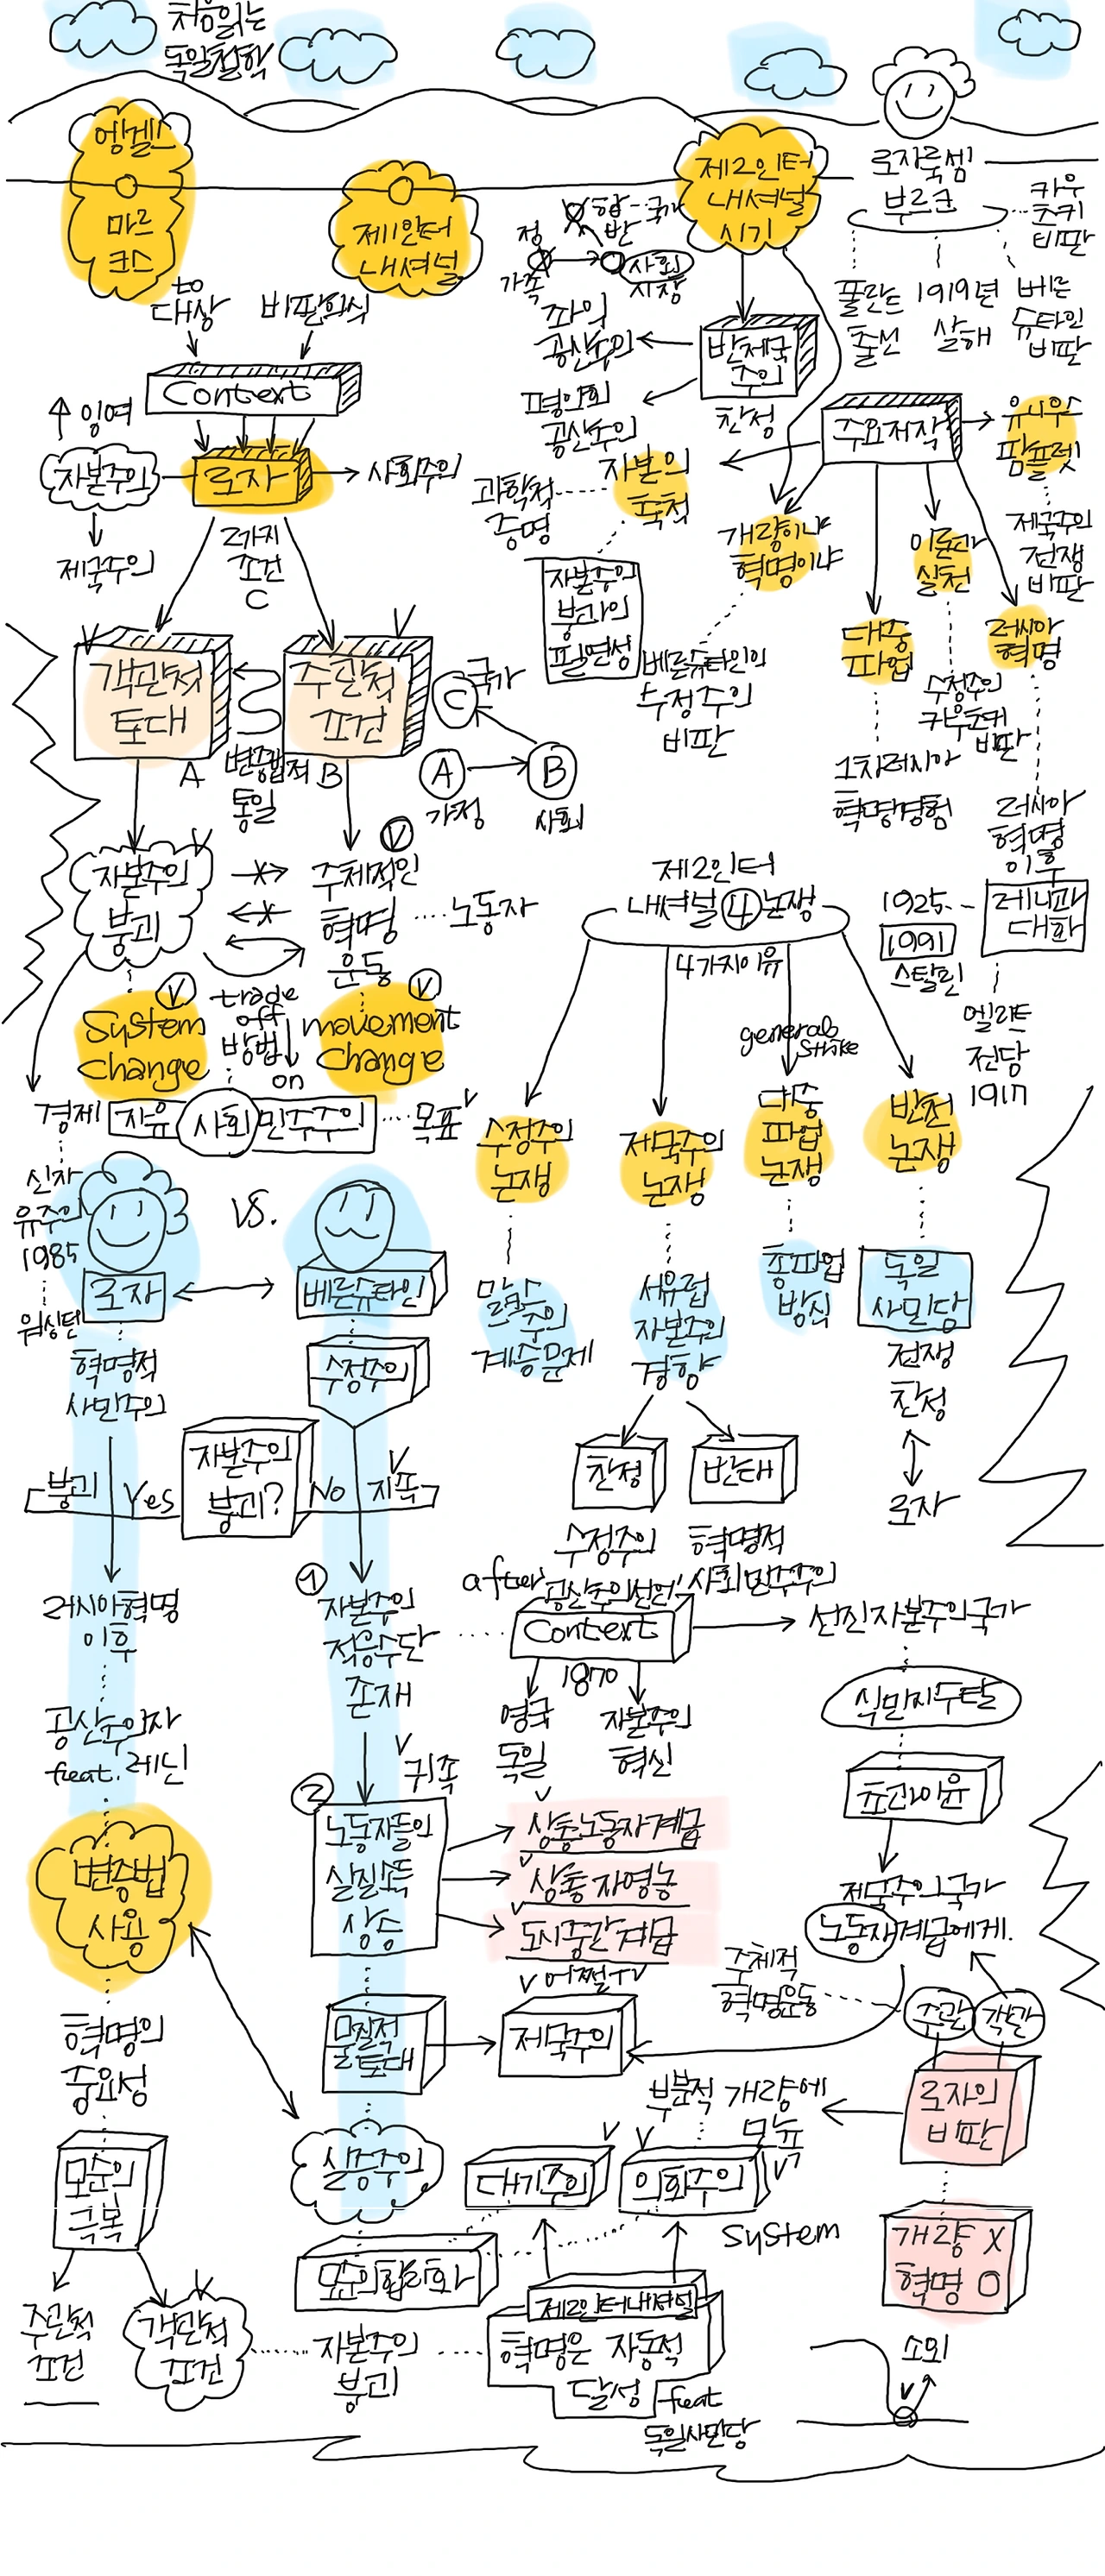 처음읽는
독일철학
엥겔스
마르
크스
제1인터
내셔널
제2인터
내셔널
시기
로자룩셈
부르크
카우
츠키
비판
폴란드
출신
1919년
살해
베른
슈타인
비판
정
합
반
국가
가족
사회
시장
to
대상
비판의식
Context
↑ 잉여
자본주의
로자
사회주의
제국주의
2가지
조건
C
좌익
공산주의
평의회
공산주의
반제국
주의
찬성
주요저작
유니우스
팜플렛
제국주의
전쟁
비판
과학적
증명
자본의
축적
자본주의
붕괴의
필연성
개량이냐
혁명이냐
베른슈타인의
수정주의
비판
대중
파업
1차러시아
혁명경험
이론과
실천
수정주의
카우츠키
비판
러시아
혁명
러시아
혁명
이후
레닌과
대화
1925
1991
스탈린
엘리트
전당
1917
객관적
토대
A
변증법적
통일
주관적
조건
B
C 국가
A
가정
B
사회
자본주의
붕괴
주체적인
혁명
운동
노동자
System
change
trade
off
방법
on
movement
change
경제
자유 사회 민주주의
목표
신자
유주의
1985
워싱턴
로자
VS.
베른슈타인
혁명적
사민주의
수정주의
자본주의
붕괴?
붕괴
Yes
No
지속
러시아혁명
이후
공산주의자
feat. 레닌
변증법
사용
혁명의
중요성
모순의
극복
주관적
조건
객관적
조건
①
자본주의
적응수단
존재
②
귀족
노동자들의
실질소득
상승
상층노동자계급
상층 자영농
도시중간계급
어쩔TV
물질적
토대
제국주의
실증주의
모순의합리화
자본주의
붕괴
제2인터
내셔널 ④ 논쟁
4가지이유
general
strike
수정주의
논쟁
맑스
주의
계승문제
제국주의
논쟁
서유럽
자본주의
경향
찬성
수정주의
반대
혁명적
사회민주주의
대중
파업
논쟁
총파업
방식
반전
논쟁
독일
사민당
전쟁
찬성
로자
after
공산주의선언
Context
1870
영국
독일
자본주의
혁신
선진자본주의국가
식민지수탈
초과이윤
제국주의국가
노동자계급에게.
주체적
혁명운동
주관
객관
로자의
비판
부분적 개량에
모뉴
대기주의
의회주의
System
개량 X
혁명 O
제2인터내셔널
혁명은 자동적
달성
feat
독일사민당
소외